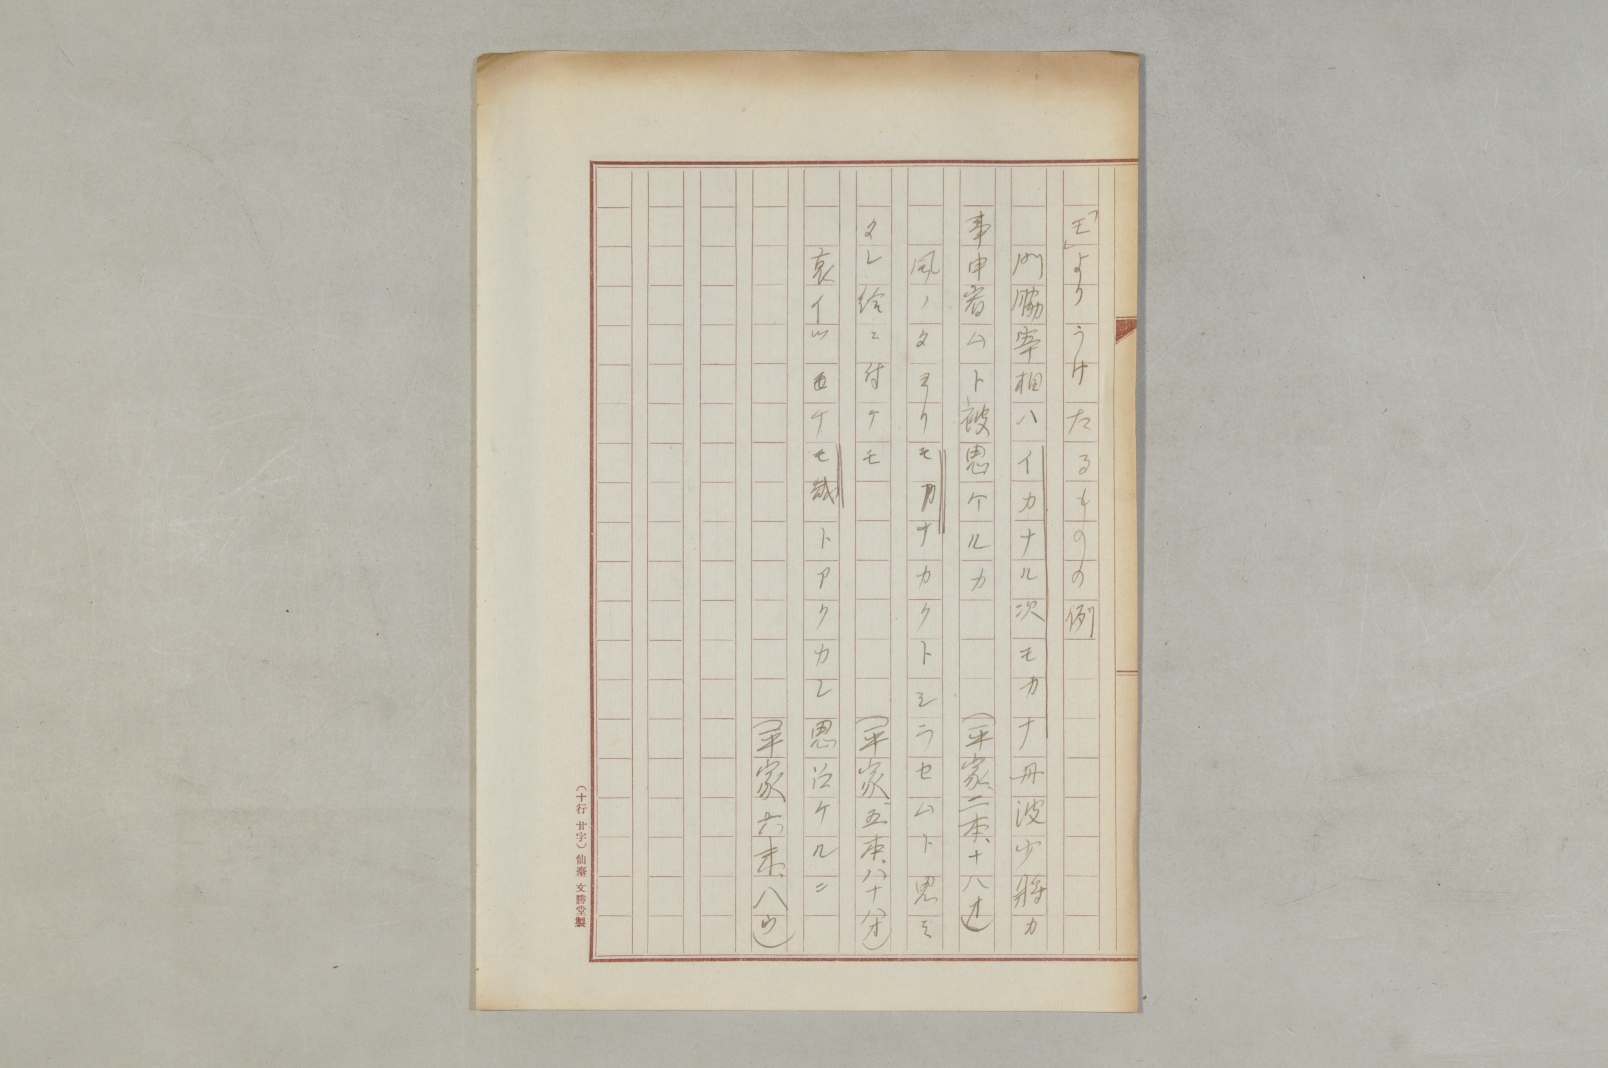 「モ」よりうけたるものの例
門脇宰相ハイカナル次モカナ丹波少将カ
事申宥ムト被思ケルカ(平家二本、十八オ)
風ノタヨリモカナカクトシラセムト思ミ
タレ給ニ付ケモ(平家五本、八十八オ)
哀イツ ケモ哉トアクカレ思 ケルニ
(平家六末、八ウ)
(十行 廿字)仙臺 文勝堂製